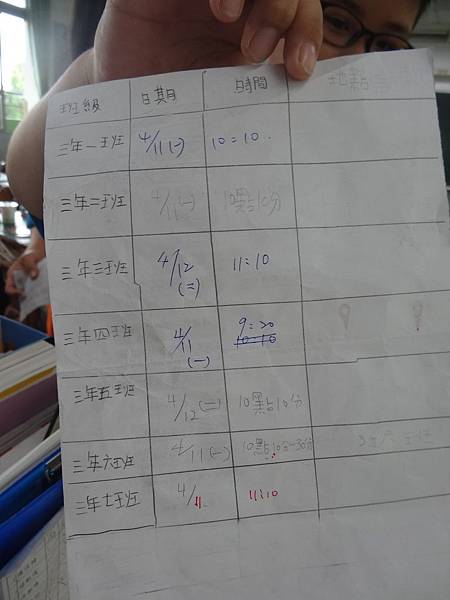 班級 日期 時間 地點
三年一班 4/11(一) 10:10.
三年二班 4/11(一) 10點10分
三年三班 4/12(二) 11:10
三年四班 4/11(一) 9:20 10:10
三年五班 4/12(二) 10點10分
三年六班 4/11(一) 10點10分~30分
三年七班 4/11 11:10